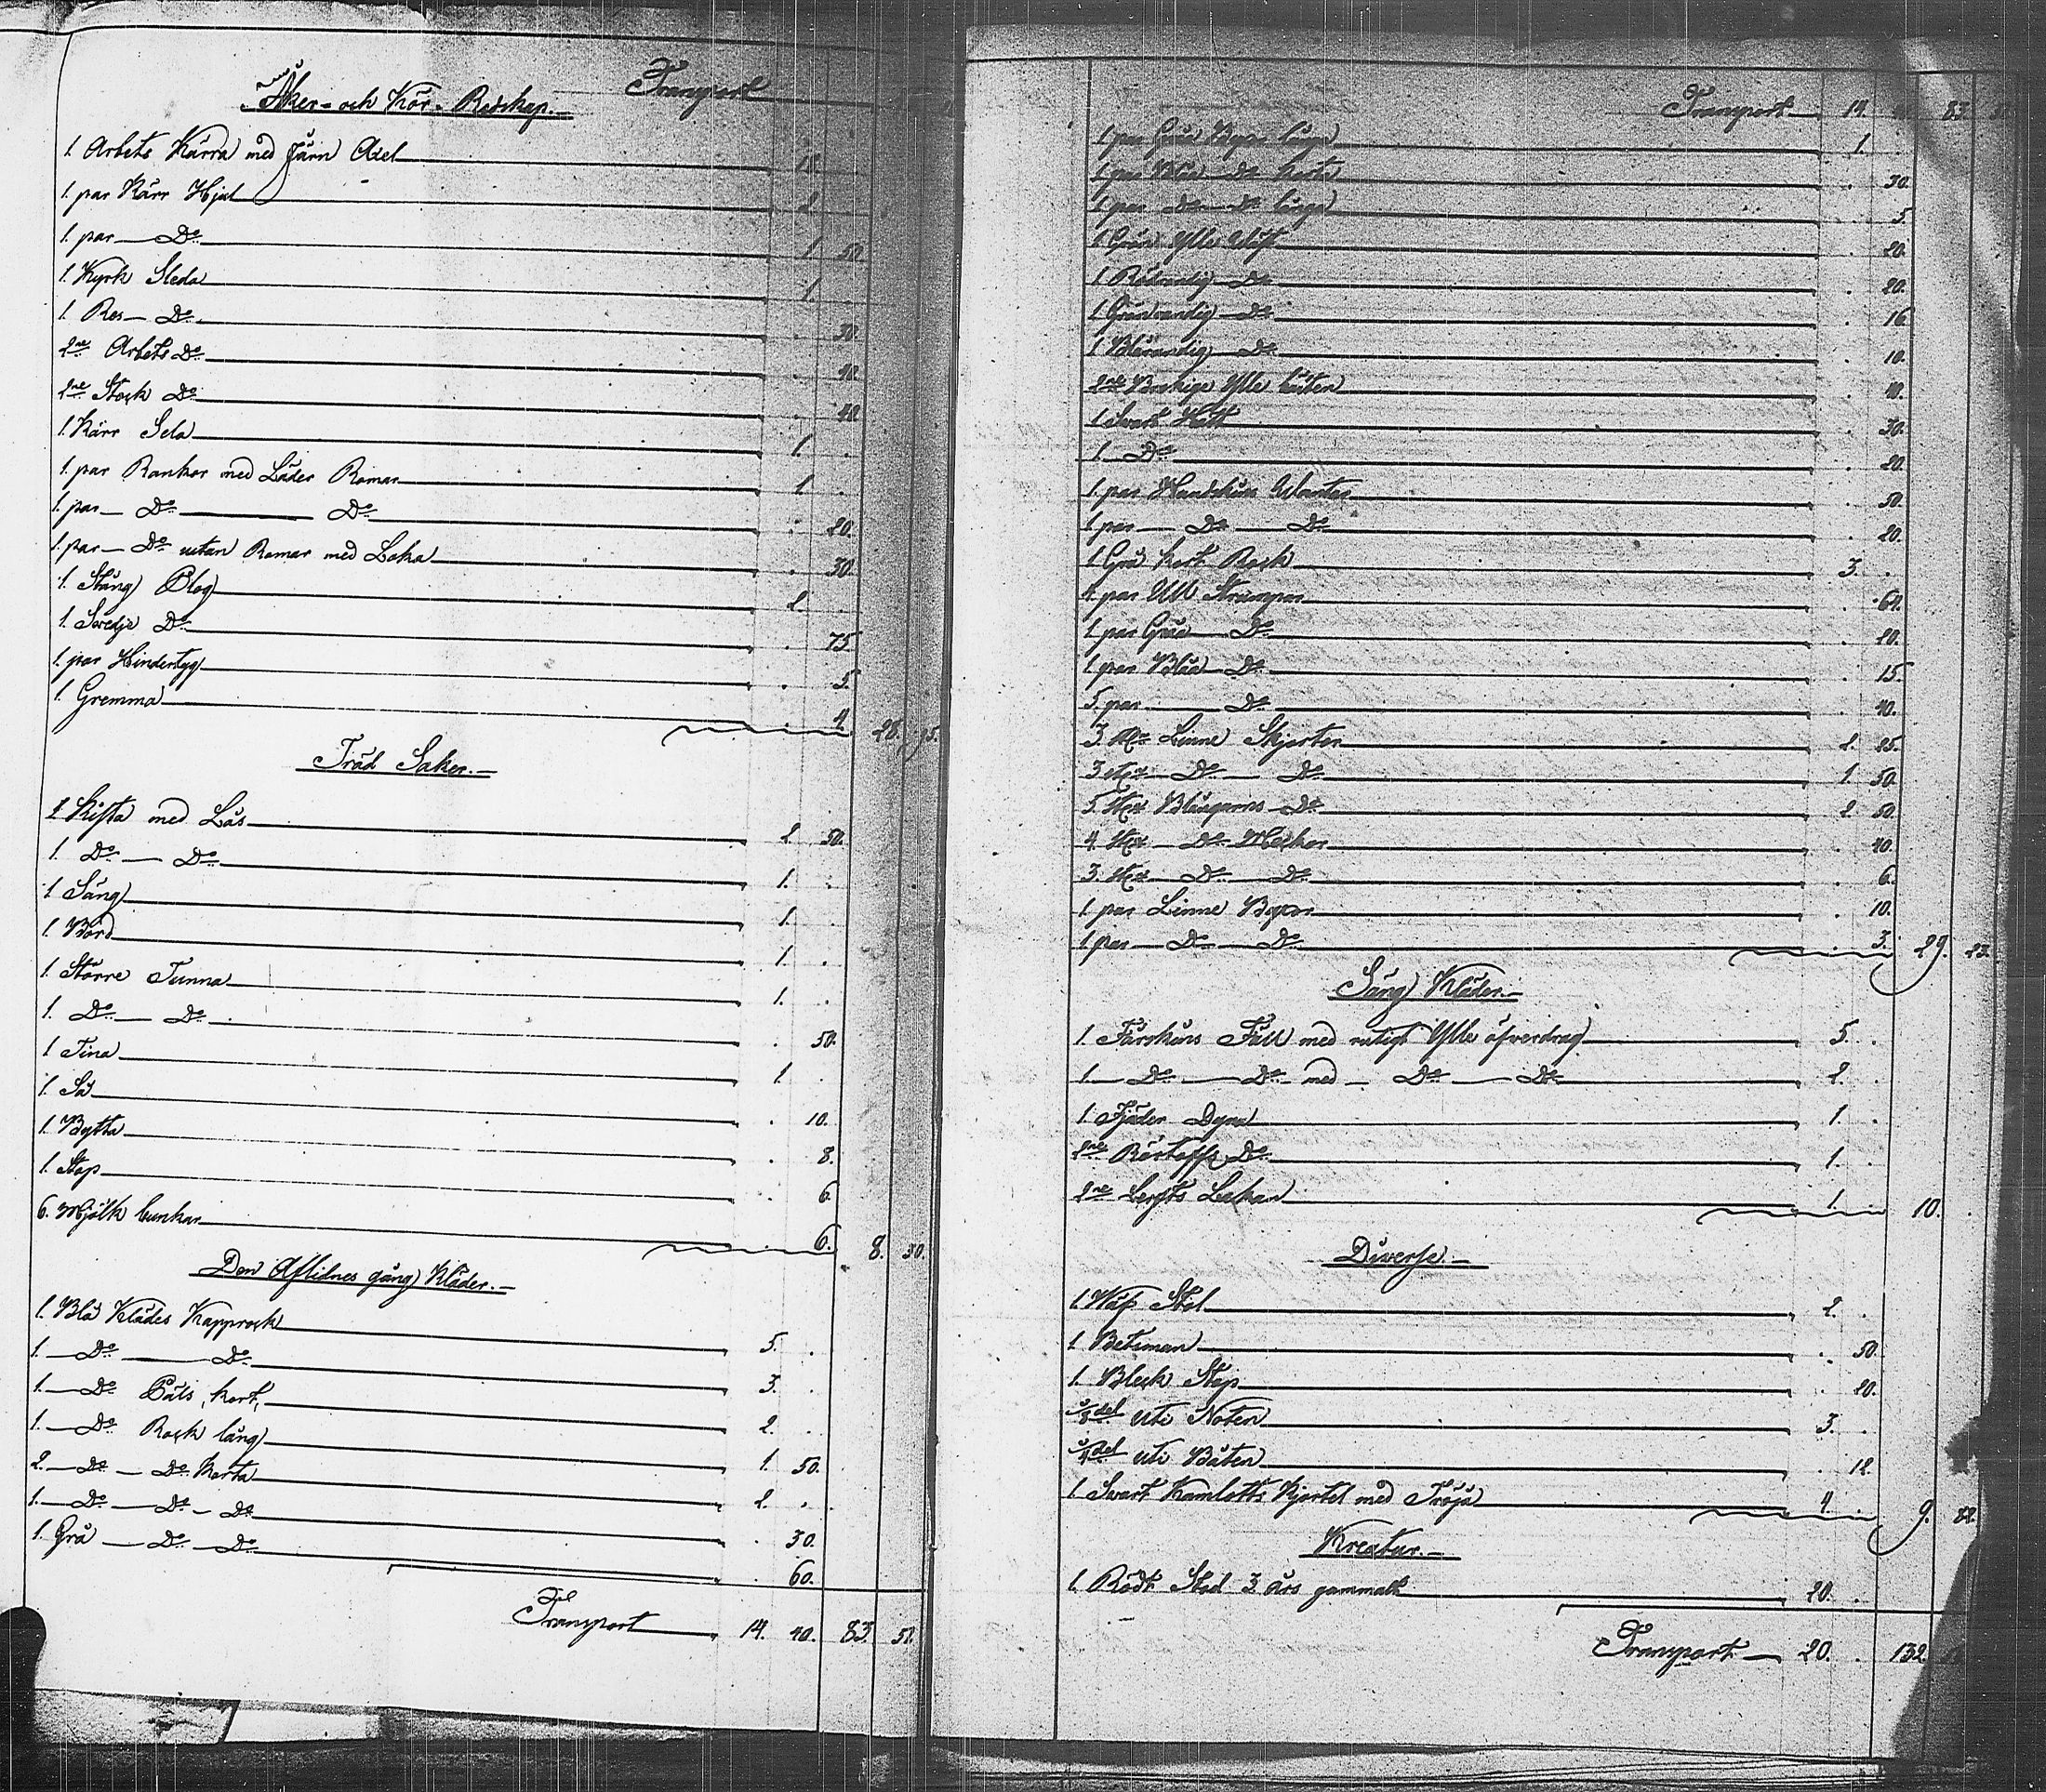 Transport
Åker- och Kör- Redskap.
1. Arbets Kärra med Järn Axel
1. par Kärr Hjul 2
1. par D:o 1 50
1. Kyrk Släda 1.
1. Res- D:o 30.
2:ne Arbets D:o 40.
2:ne Stock D:o 40.
1. Kärr Sela 1
1. par Rankor med Läder Remar 1.
1. par D:o D:o 20.
1. par D:o utan Remar med Loka 30.
1. Stång Plog 2
1. Svedje D:o 75
1. par Hindertyg 5.
1. Gremma 4. 28. 15.
Träd Saker.
1 Kista med Lås 2 50.
1. D:o D:o 1.
1 Säng 1.
1 Bord 1.
1 Större Tunna 1.
1. D:o D:o 50.
1 Tina 1.
1. Så 10.
1. Bytta 8.
1. Stop 6.
6. Mjölk bunkar 6. 8. 30.
Den Aflidnes gång Kläder.
1. Blå Klädes Kapprock 5.
1. D:o D:o 3.
1. D:o Päls, kort, 2.
1. D:o Rock lång 1. 50.
2. D:o D:o Korta 2.
1. D:o D:o D:o 30.
1. Grå D:o D:o 60.
Transport 14. 40. 83. 51.
Transport 14. 83.
1 par Gråa Byxor långa 1.
1 par Blåa D:o korta 30.
1 par D:o D:o långa 5.
1 Grön Ylle Wäst 20.
1 Rödrandig D:o 20.
1 Grönrandig D:o 16.
1 Blårandig D:o 10.
2:ne Ylle 10.
1 Svart Hatt 30.
1 D:o 20.
1. par Handskins Wantar 50.
1 par D:o D:o 20.
1 Grå kort Rock 3.
4. par Ull Strumpor 64.
1 par Gråa D:o 20.
1 par Blåa D:o 15.
5. par D:o 40.
3. st:n Linne Skjortor 2. 25.
3 st:n D:o D:o 1. 50.
5. st:n Blaggarns D:o 2 50.
4. st:n D:o 40.
3. st:n D:o D:o 6.
1 par Linne Byxor 10.
1 par D:o D:o 3. 29. 23.
Säng Kläder.
1 Fårskins Fäll med rutigt Ylle öfverdrag 5.
1. D:o D:o med D:o D:o 2.
1 Fjäder Dyna 1.
2:ne D:o 1.
2:ne Lerfts Lakan 1. 10.
Diverse.
1. Wäf Stol 2
1 Betsman 50.
1. Bleck Stop 20.
1/8 del uti Noten 3.
1/4 del uti Båten 12.
1. Svart Kamlotts Kjortel med Tröja 4. 9. 82.
Kreatur.
1. Rödt Stod 3 års gammalt 20.
Transport 20. 132.